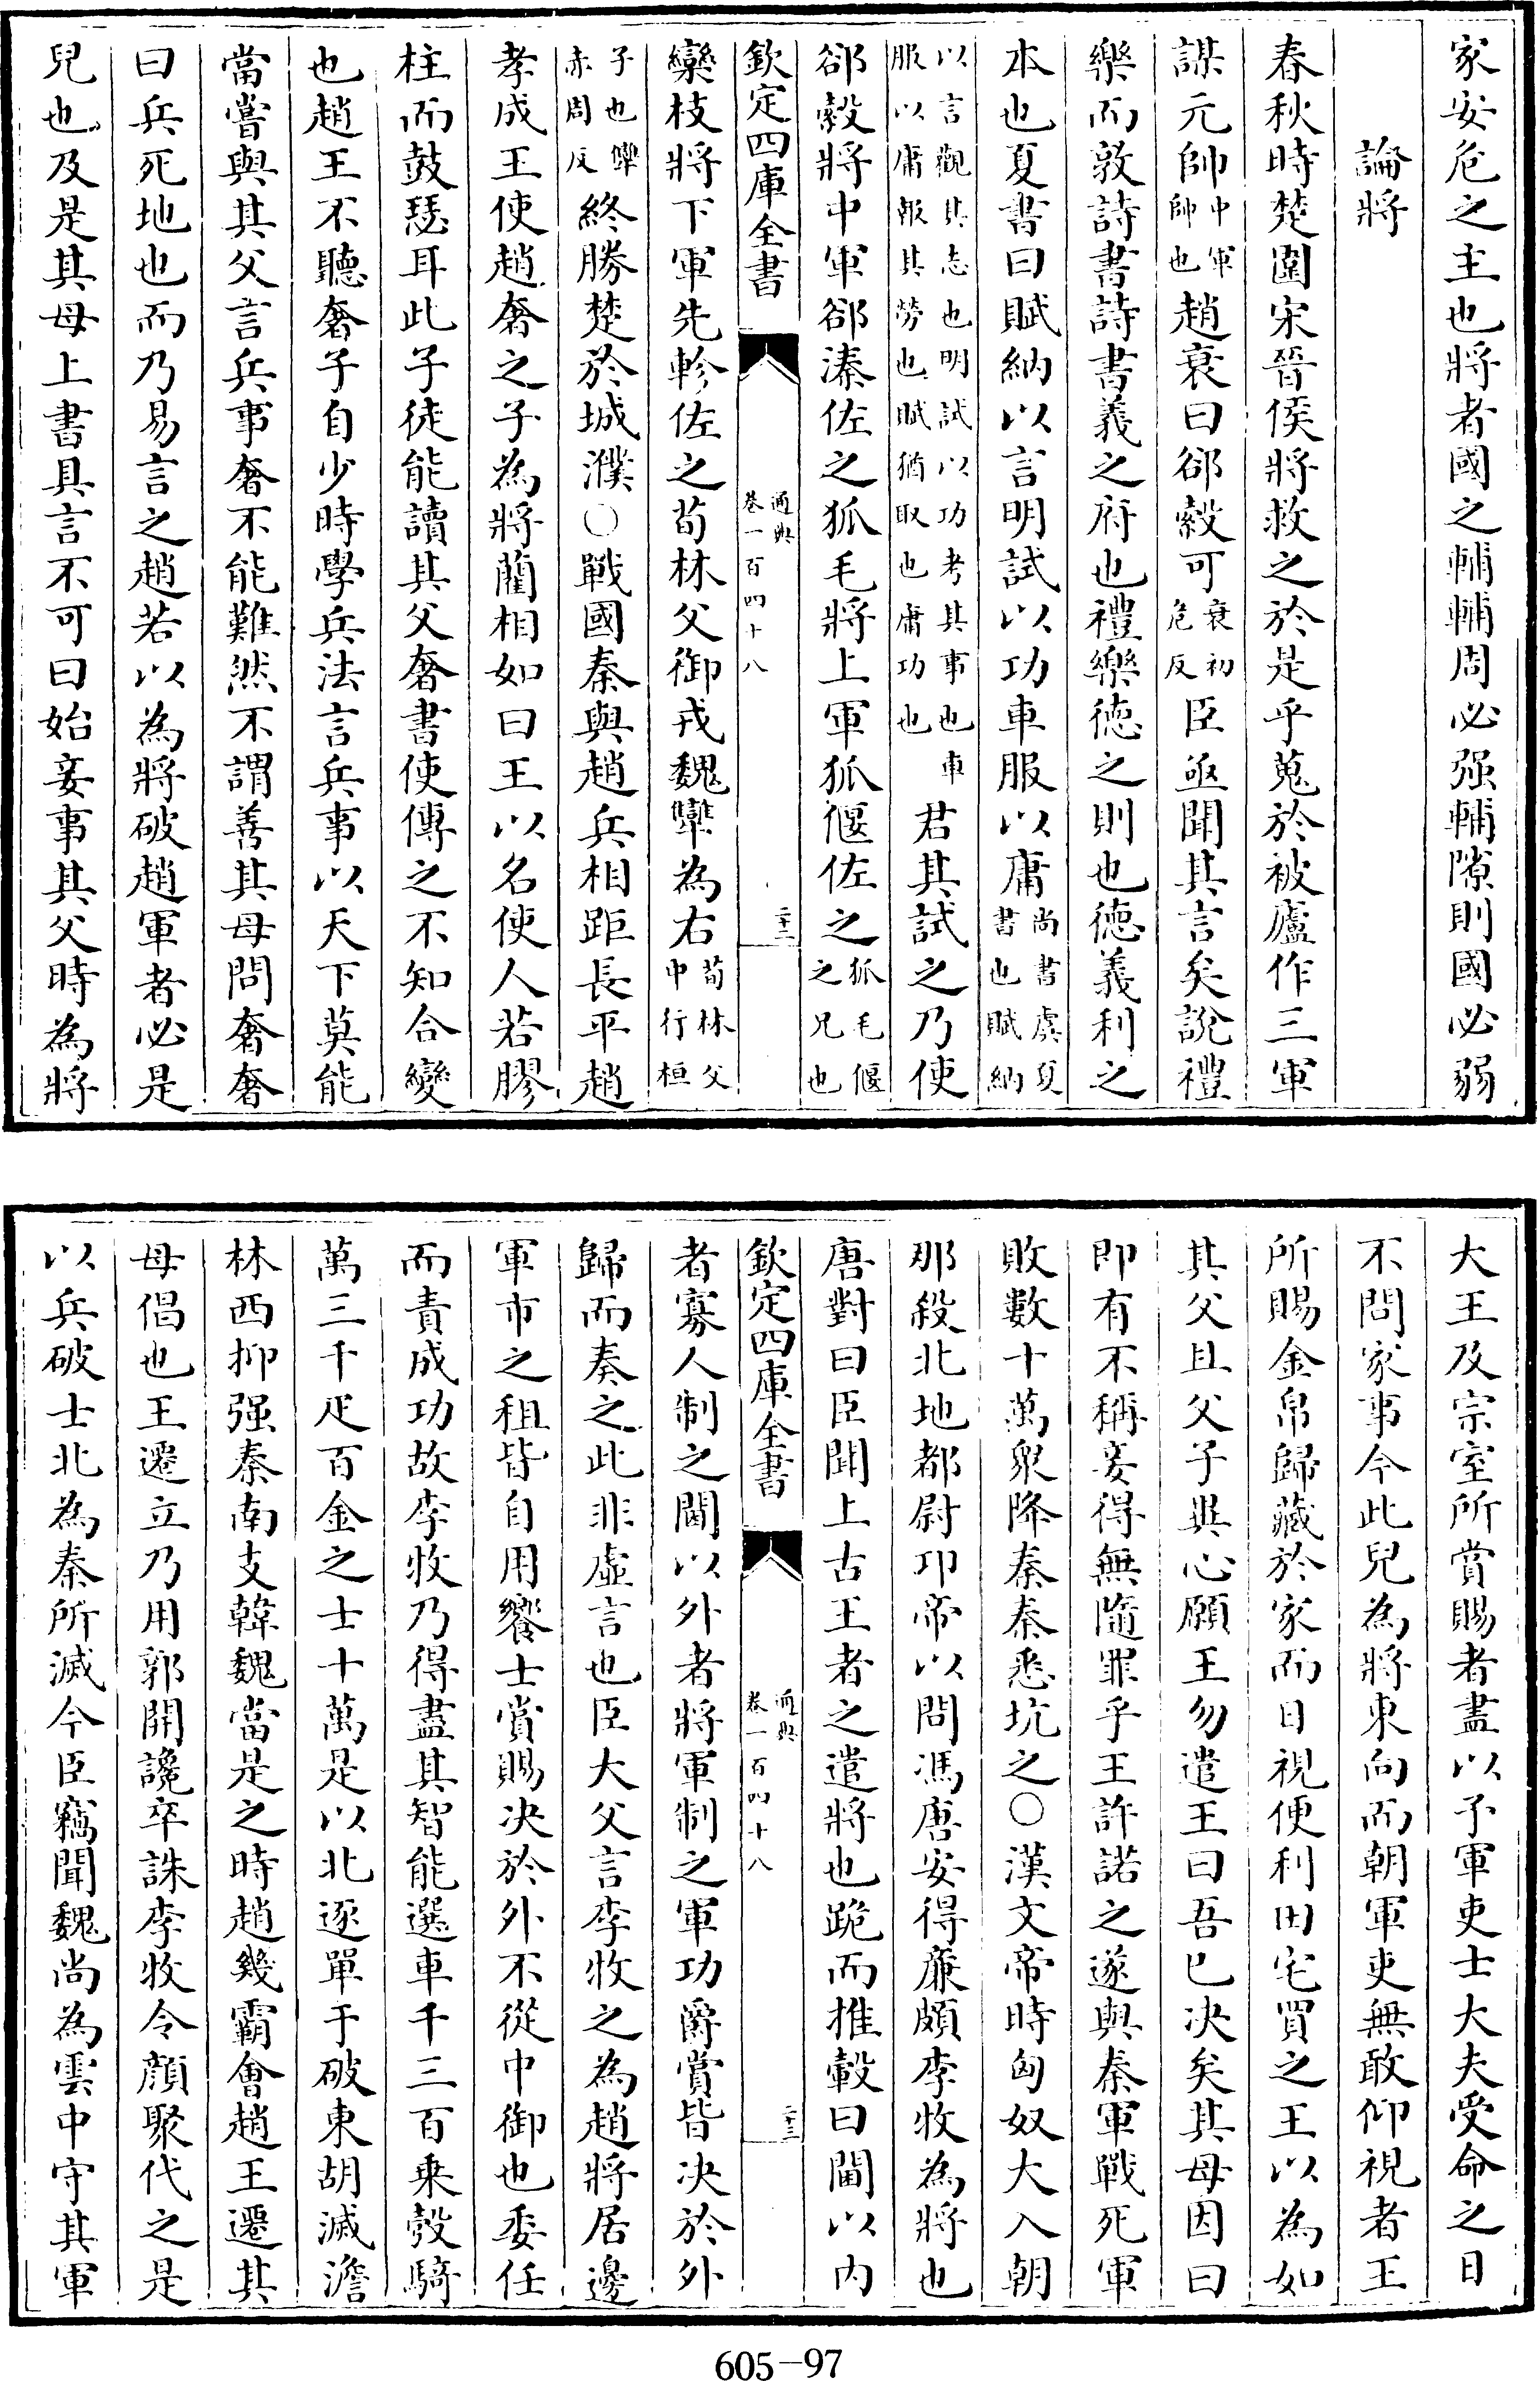 家安危之主也將者國之輔輔周必强輔隙則國必弱
論將
春秋時楚圍宋晉侯將救之於是乎蒐於被廬作三軍
謀元帥中軍帥也趙衰曰郤縠可衰初危反臣亟聞其言矣說禮
樂而敦詩書詩書義之府也禮樂徳之則也徳義利之
本也夏書曰賦納以言明試以功車服以庸尚書虞夏書也賦納
以言觀其志也明試以功考其事也車服以庸報其勞也賦猶取也庸功也君其試之乃使
郤縠將中軍郤溱佐之狐毛將上軍狐偃佐之狐毛偃之兄也
欽定四庫全書
通典
卷一百四十八
二十三
欒枝將下軍先軫佐之荀林父御戎魏犨為右荀林父中行桓
子也犨赤周反終勝楚於城濮○戰國秦與趙兵相距長平趙
孝成王使趙奢之子為將藺相如曰王以名使人若膠
柱而鼓瑟耳此子徒能讀其父奢書使傳之不知合變
也趙王不聽奢子自少時學兵法言兵事以天下莫能
當嘗與其父言兵事奢不能難然不謂善其母問奢奢
曰兵死地也而乃易言之趙若以為將破趙軍者必是
兒也及是其母上書具言不可曰始妾事其父時為將
大王及宗室所賞賜者盡以予軍吏士大夫受命之日
不問家事今此兒為將東向而朝軍吏無敢仰視者王
所賜金帛歸藏於家而日視便利田宅買之王以為如
其父且父子異心願王勿遣王曰吾已决矣其母因曰
即有不稱妾得無隨罪乎王許諾之遂與秦軍戰死軍
敗數十萬衆降秦秦悉坑之○漢文帝時匈奴大入朝
那殺北地都尉卭帝以問馮唐安得亷頗李牧為將也
唐對曰臣聞上古王者之遣將也跪而推轂曰閫以内
欽定四庫全書
通典
卷一百四十八
二十三
者寡人制之閫以外者將軍制之軍功爵賞皆决於外
歸而奏之此非虛言也臣大父言李牧之為趙將居邊
軍市之租皆自用饗士賞賜决於外不從中御也委任
而責成功故李牧乃得盡其智能選車千三百乗彀騎
萬三千疋百金之士十萬是以北逐單于破東胡滅澹
林西抑强秦南支韓魏當是之時趙幾霸會趙王遷其
母倡也王遷立乃用郭開讒卒誅李牧令顔聚代之是
以兵破士北為秦所滅今臣竊聞魏尚為雲中守其軍
605-97